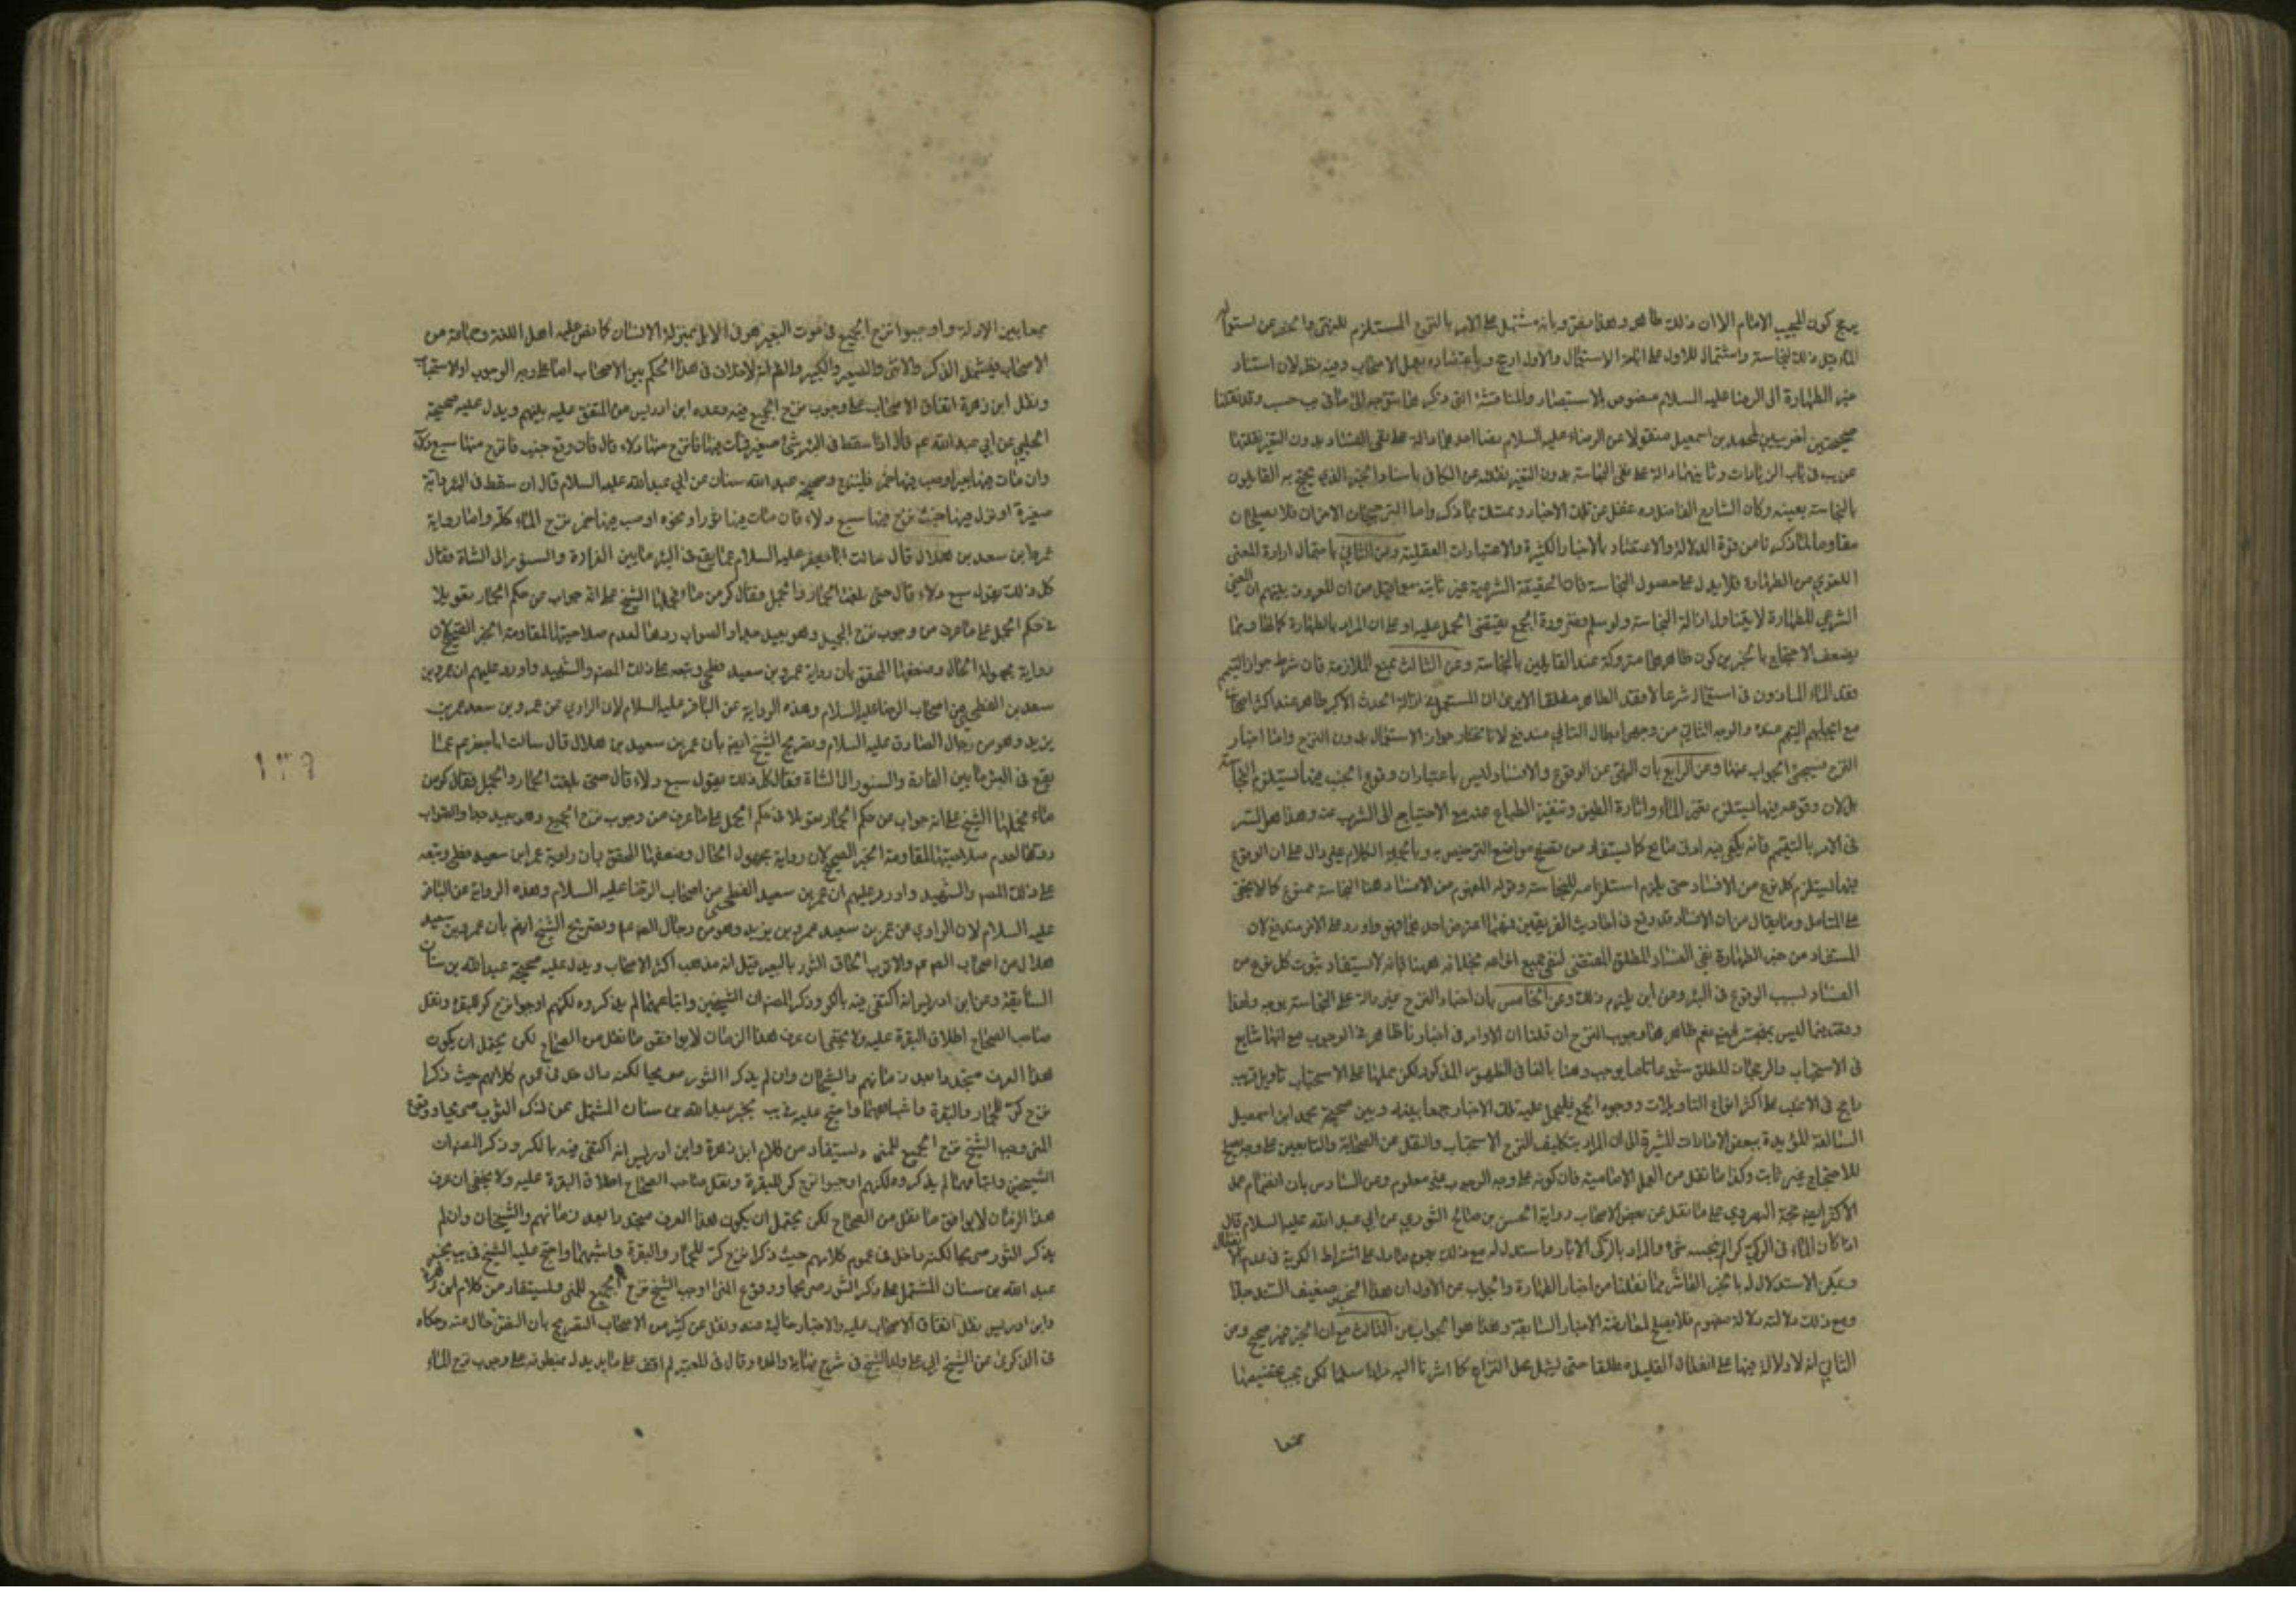 يرجح كون المجيب الامام الا ان ذلك ظاهر وهذا مضمر وبانه مشتمل على الامر بالنزح المستلزم للنهي
الماء قبل ذلك لنجاسة واشتمال الاول على اباحة الاستعمال والاول ارجح وباعتضاده بعمل الاصحاب وفيه نظر لان استناد
خبر الطهارة الى الرضا عليه السلام منصوص بالاستبصار والمناقشة التي ذكر
صحيحتين اخريين لمحمد بن اسمعيل منقولا عن الرضاء عليه السلام دالة على نفي الفساد بدون التغير
يب في باب الزيادات دالة على نفي النجاسة بدون التغير عن الكافي باسناد الخبر الذي يحتج به القايلون
بالنجاسة بعينه وكان الشارح الفاضل ره غفل عن تلك الاخبار وتمسك بما ذكر واما الترجيحان الاخران فلا يصلحان
مقاوما لما ذكرنا من قوة الدلالة والاعتضاد بالاخبار الكثيرة والاعتبارات العقلية وعن الثاني باحتمال ارادة المعنى
اللغوي من الطهارة فلا يدل على حصول النجاسة فان الحقيقة الشرعية غير ثابتة
الشرعي للطهارة لا يتناول ازالة النجاسة ولو سلم فضرورة الجمع يقتضي الحمل عليه او على ان المراد بالطهارة
يضعف الاحتجاج بالخبر كون ظاهرها متروكة عند القايلين بالنجاسة وعن الثالث بمنع الملازمة فان شرط جواز التيمم
فقد الماء الماذون في استعماله شرعا لا فقد الطاهر مطلقا الا يرى ان المستعمل في ازالة الحدث الاكبر طاهر عند اكثر اصحابنا
مع ايجابهم التيمم عنده والوجه الثاني من وجهي ابطال التالي مندفع لانا نختار جواز الاستعمال بدون النزح واما اخبار
النزح فسيجئ الجواب عنها وعن الرابع بان النهي عن الوقوع والافساد ليس باعتبار ان وقوع الجنب فيها يستلزم النجاسة
بل لان وقوعه فيها يستلزم تغير الماء واثارة الطين وتنفير الطباع عنه مع الاحتياج الى الشرب منه وهذا هو السر
في الامر بالتيمم فانه يكفي فيه ادنى مانع كما يستفاد من تصفح مواضع الترخيص به وبالجملة الكلام غير دال على ان الوقوع
فيها يستلزم كل نوع من الافساد حتى يلزم استلزامه للنجاسة وقوله المفهوم من الافساد هنا النجاسة ممنوع كما لا يخفى
على المتامل وما يقال من ان الافساد قد وقع في احاديث الفريقين
المستفاد من خبر الطهارة نفي الفساد المطلق المقتضي لنفي جميع انواعه بخلافه ههنا فانه لا يستفاد ثبوت كل نوع من
الفساد لسبب الوقوع في البئر ومن اين يلزم ذلك وعن الخامس بان اخبار النزح غير دالة على النجاسة بوجه
نعم ظاهرها وجوب النزح ان قلنا ان الاوامر في اخبارنا ظاهرة في الوجوب مع انها شايع
في الاستحباب لكن حملها على الاستحباب تاويل قريب
راجح في الاغلب على اكثر انواع التاويلات ووجوه الجمع فليحمل عليه تلك الاخبار جمعا بينها وبين صحيحة محمد ابن اسمعيل
السالفة المؤيدة ببعض الامارات المشيرة الى ان المراد بتكليف النزح الاستحباب والنقل عن الصحابة والتابعين على وجه يصلح
للاحتجاج غير ثابت وكذا ما نقل من العمل الامامية فان كونه على وجه الوجوب غير معلوم وعن السادس بان انضمام عمل
الاكثر اليه حجة البصروي على ما نقل عن بعض الاصحاب رواية الحسن بن صالح الثوري عن ابي عبد الله عليه السلام قال
اذا كان الماء في الركي كرا لم ينجسه شئ والمراد بالركي الابار على اشتراط الكرية في عدم
ويمكن الاستدلال له بالخبر العاشر مما نقلنا من اخبار الطهارة والجواب عن الاول ان هذا الخبر ضعيف السند جدا
ومع ذلك دلالته دلالة مفهوم فلا يصلح لمعارضة الاخبار السابقة وهذا هو الجواب عن الثالث مع ان الخبر غير صحيح وعن
الثاني انه لا دلالة فيها على انفعال القليل مطلقا حتى يشمل محل النزاع كما اشرنا اليه مرارا سلمنا لكن يجب تخصيصها
جمعا
جمعا بين الادلة واوجبوا نزح الجميع في موت البعير هو في الابل بمنزلة الانسان كما نص عليه اهل اللغة وجماعة من
الاصحاب فيشمل الذكر والانثى والصغير والكبير والظاهر انه لا خلاف في هذا الحكم بين الاصحاب اما على وجه الوجوب او الاستحباب
ونقل ابن زهرة اتفاق الاصحاب على وجوب نزح الجميع فيه وعده ابن ادريس من المتفق عليه بينهم ويدل عليه صحيحة
الحلبي عن ابي عبد الله عم قال اذا سقط في البئر شئ صغير فمات فيها فانزح منها دلاء قال فان وقع جنب فانزح منها سبع دلاء
وان مات فيها بعير او صب فيها خمر فلينزح وصحيحة عبد الله سنان عن ابي عبد الله عليه السلام قال ان سقط في البئر دابة
صغيرة او نزل فيها جنب نزح منها سبع دلاء فان مات فيها ثور او نحوه او صب فيها خمر نزح الماء كله واما رواية
عمرو بن سعد بن هلال قال سالت ابا جعفر عليه السلام عما يقع في البئر ما بين الفارة والسنور الى الشاة فقال
كل ذلك يقول سبع دلاء قال حتى بلغت الحمار والجمل فقال كر من ماء فحملها الشيخ على انه جواب من حكم الحمار تعويلا
في حكم الجمل على ما عرف من وجوب نزح الجميع وهو بعيد جدا والصواب ردها لعدم صلاحيتها لمقاومة الخبر الصحيح لان
رواية مجهولة الحال وضعفها المحقق بان رواية عمرو بن سعيد فطحي وتبعه على ذلك المصنف والشهيد واورد عليهم ان عمرو بن
سعد بن الفطحي من اصحاب الرضا عليه السلام وهذه الرواية عن الباقر عليه السلام لان الراوي عن عمرو بن سعد عمر بن
يزيد وهو من رجال الصادق عليه السلام وتصريح الشيخ ايضا بان عمر بن سعيد بن هلال قال سالت ابا جعفر عم عما
يقع في البئر ما بين الفارة والسنور الى الشاة فقال كل ذلك يقول سبع دلاء قال حتى بلغت الحمار والجمل فقال كر من
ماء فحملها الشيخ على انه جواب عن حكم الحمار تعويلا في حكم الجمل على ما عرف من وجوب نزح الجميع وهو بعيد جدا والصواب
ردها لعدم صلاحيتها لمقاومة الخبر الصحيح لان رواية مجهول الحال وضعفها المحقق بان راوية عمر ابن سعيد فطحي وتبعه
على ذلك المصنف والشهيد واورد عليهم ان عمر بن سعيد الفطحي من اصحاب الرضا عليه السلام وهذه الرواية عن الباقر
عليه السلام لان الراوي عن عمر بن سعيد عمرو بن يزيد وهو من رجال الصادق عم وتصريح الشيخ ايضا بان عمرو بن سعيد
هلال من اصحاب الصادق عم والاقرب الحاق الثور بالبعير قيل انه مذهب اكثر الاصحاب ويدل عليه صحيحة عبد الله بن سنان
السابقة وعن ابن ادريس انه اكتفى فيه بالكر وذكر المصنف ان الشيخين واتباعهما لم يذكروه لكنهم اوجبوا نزح كر للبقرة ونقل
صاحب الصحاح اطلاق البقرة عليه ولا يخفى ان عرف هذا الزمان لا يوافق ما نقل من الصحاح لكن يحتمل ان يكون
هذا العرف متجددا بعد زمانهم والشيخان وان لم يذكرا الثور صريحا لكنه داخل في عموم كلامهم حيث ذكرا
نزح كر للحمار والبقرة وما شابههما واحتج عليه في يب بخبر عبد الله بن سنان المشتمل على ذكر الثور صريحا ووقوع
المني وجبوا الشيخ نزح الجميع للمني ويستفاد من كلام ابن زهرة وابن ادريس انه اكتفى فيه بالكر وذكر المصنف ان
الشيخين واتباعهما لم يذكروه لكنهم اوجبوا نزح كر للبقرة ونقل صاحب الصحاح اطلاق البقرة عليه ولا يخفى ان عرف
هذا الزمان لا يوافق ما نقل من الصحاح لكن يحتمل ان يكون هذا العرف متجددا بعد زمانهم والشيخان وان لم
يذكر الثور صريحا لكنه داخل في عموم كلامهم حيث ذكرا نزح كر للحمار والبقرة وما شبههما واحتج عليه الشيخ في يب بخبر
عبد الله بن سنان المشتمل على ذكر الثور صريحا ووقوع المني اوجب الشيخ نزح الجميع للمني ويستفاد من كلام ابن زهرة
وابن ادريس نقل اتفاق الاصحاب عليه والاخبار خالية عنه ونقل عن كثير من الاصحاب التصريح بان النص خال عنه وحكاه
في الذكرى عن الشيخ ابي علي ولد الشيخ في شرح نهاية والده وقال في المعتبر لم اقف على ما يدل بمنطوقه على وجوب نزح الماء
١٣٩